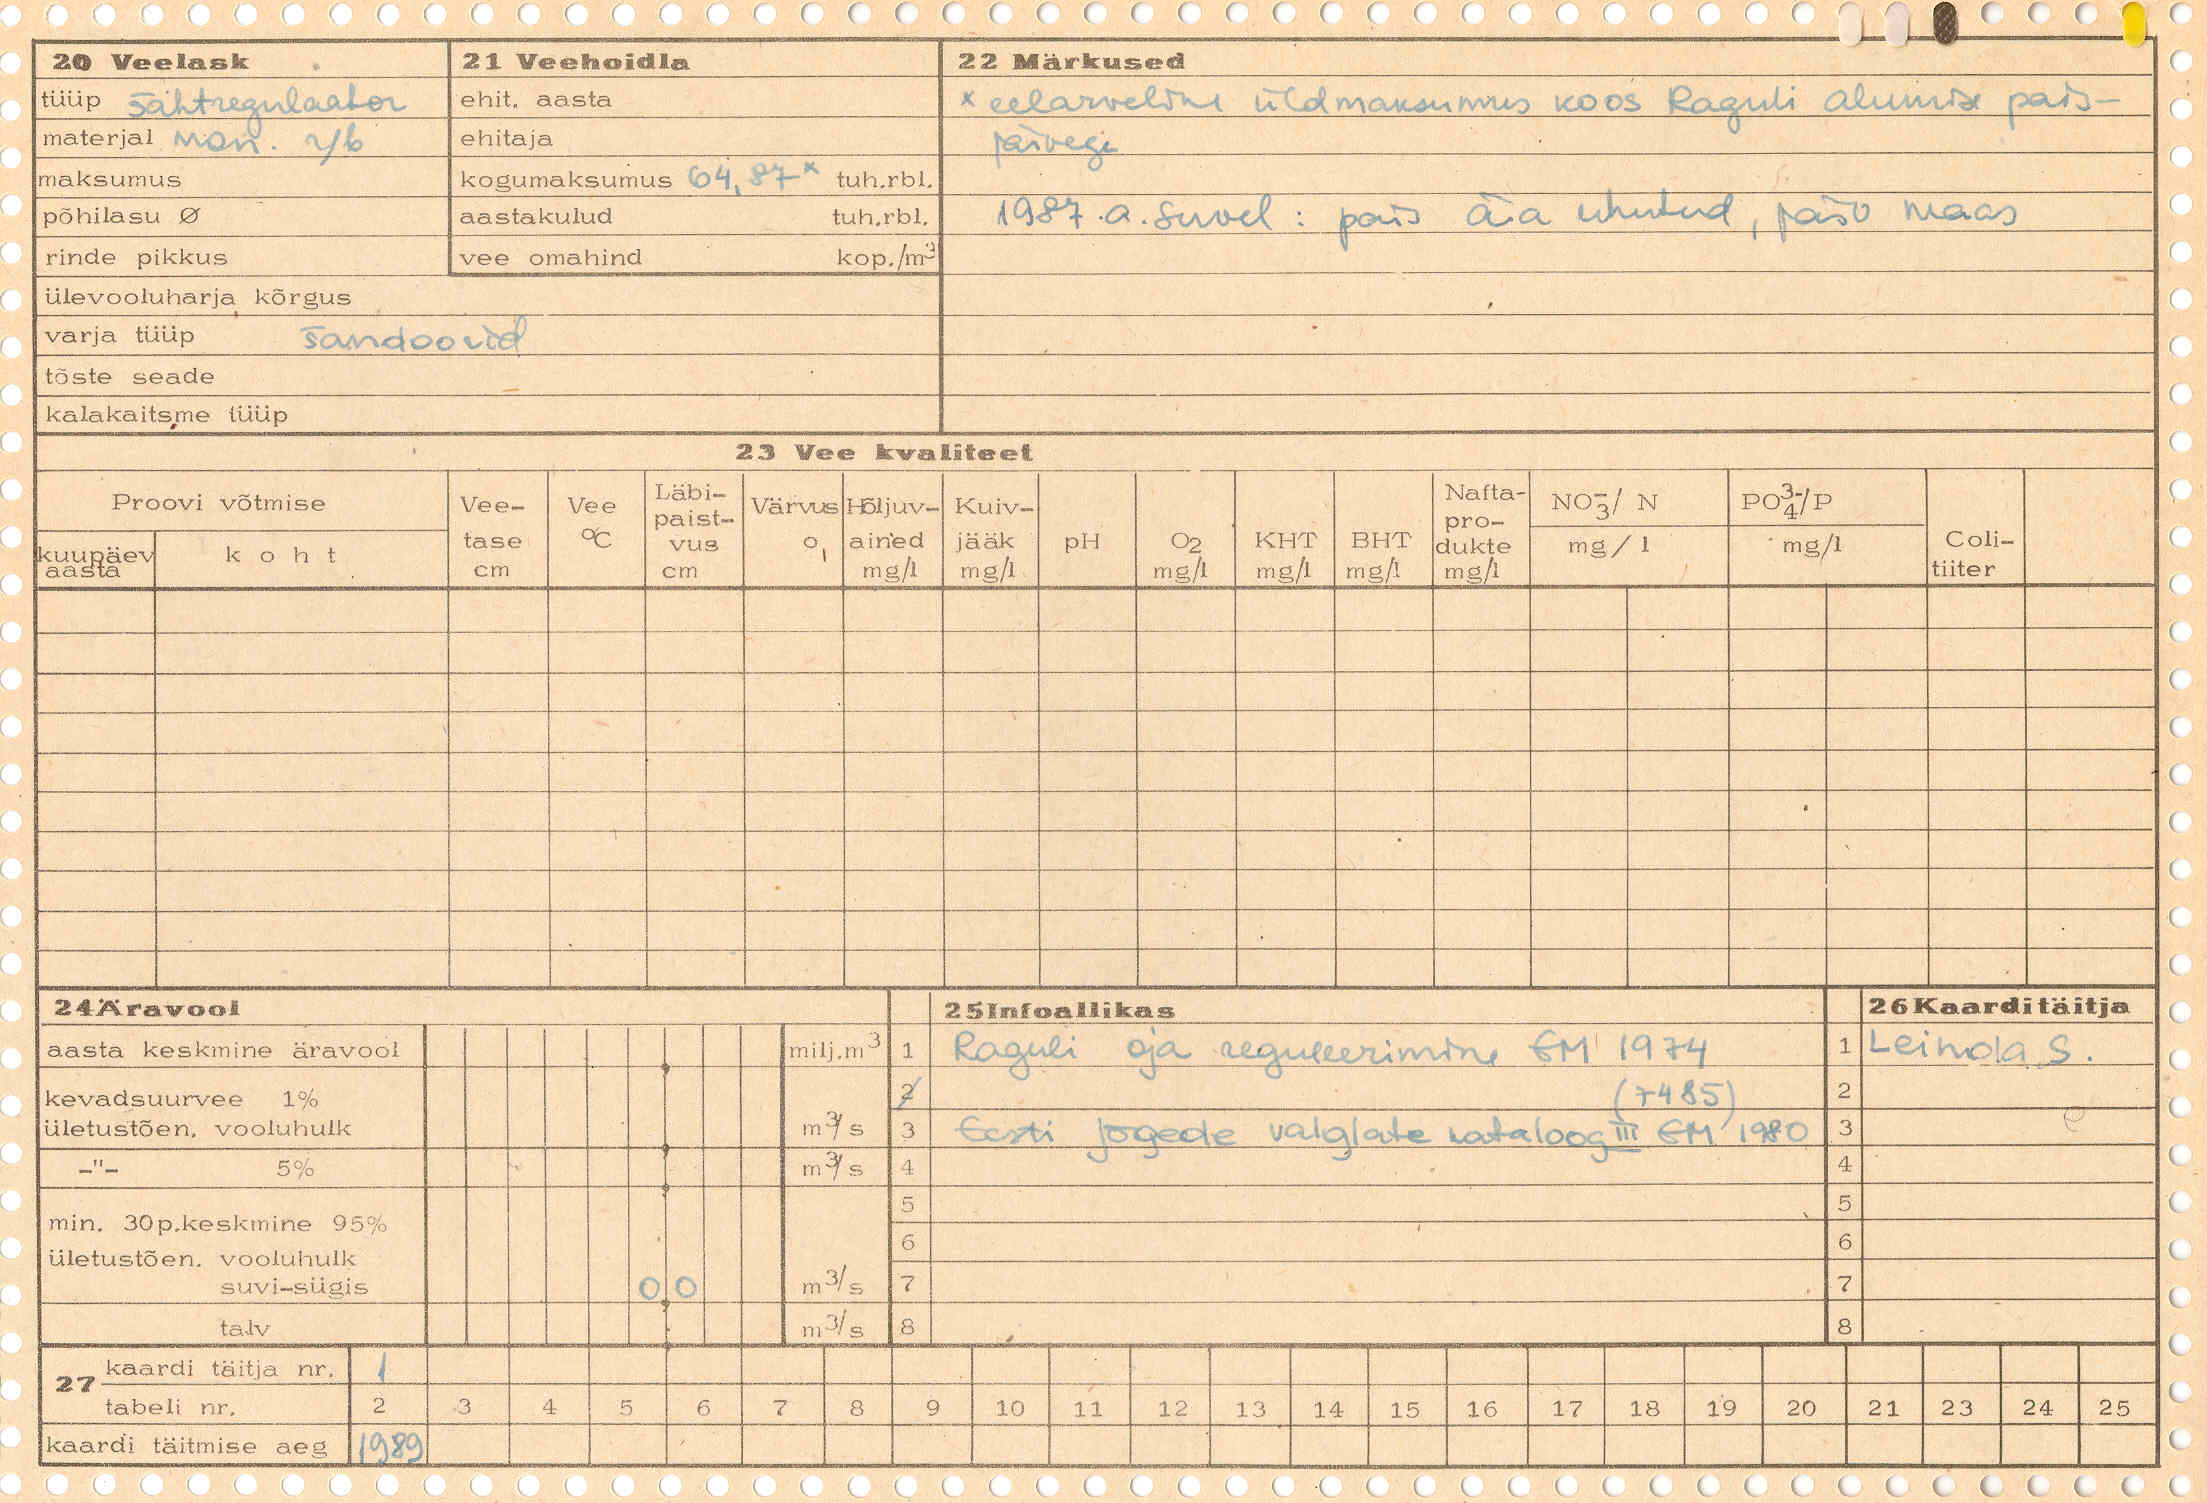 20 Veelask
tüüp šahtregulaator
materjal mon. r/b
maksumus
põhilasu Ø
rinde pikkus
ülevooluharja kõrgus
varja tüüp šandoorid
tõste seade
kalakaitsme tüüp
21 Veehoidla
ehit. aasta
ehitaja
kogumaksumus 64,87 x tuh.rbl.
aastakulud tuh.rbl.
vee omahind kop./m³
22 Märkused
x eelarveline üldmaksumus koos Raguli alumise pais-
järvega
1987.a. suvel : pais ära uhutud, järv maas
23 Vee kvaliteet
Proovi võtmise
kuupäev aasta
koht
Vee-tase cm
Vee °C
Läbi-paist-vus cm
Värvus °
Hõljuv-ained mg/l
Kuiv-jääk mg/l
pH
O2 mg/l
KHT mg/l
BHT mg/l
Nafta-pro-dukte mg/l
NO3⁻/ N mg/l
PO4³⁻/P mg/l
Coli-tiiter
24 Äravool
aasta keskmine äravool milj.m³
kevadsuurvee 1%
ületustõen. vooluhulk m³/s
-"- 5% m³/s
min. 30p.keskmine 95%
ületustõen. vooluhulk
suvi-sügis 0 0 m³/s
talv m³/s
25 Infoallikas
1 Raguli oja reguleerimine EM 1974
2 (7485)
3 Eesti jõgede valglate kataloog III EM 1980
4
5
6
7
8
26 Kaarditäitja
1 Leinola S.
2
3
4
5
6
7
8
27 kaardi täitja nr. 1
tabeli nr. 2 3 4 5 6 7 8 9 10 11 12 13 14 15 16 17 18 19 20 21 23 24 25
kaardi täitmise aeg 1989